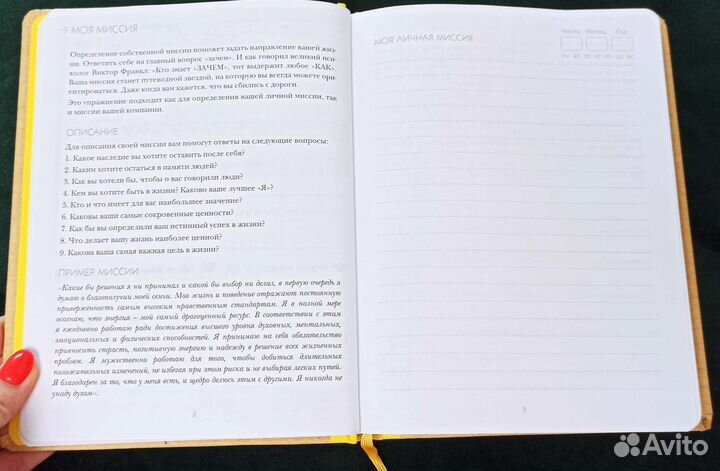 → МОЯ МИССИЯ
Определение собственной миссии поможет задать направление вашей жиз-
ни. Ответить себе на главный вопрос «зачем». И как говорил великий пси-
холог Виктор Франкл: «Кто знает «ЗАЧЕМ», тот выдержит любое «КАК».
Ваша миссия станет путеводной звездой, на которую вы всегда можете ори-
ентироваться. Даже когда вам кажется, что вы сбились с дороги.
Это упражнение подходит как для определения вашей личной миссии, так
и миссии вашей компании.
ОПИСАНИЕ
Для описания своей миссии вам помогут ответы на следующие вопросы:
1. Какое наследие вы хотите оставить после себя?
2. Каким хотите остаться в памяти людей?
3. Как вы хотели бы, чтобы о вас говорили люди?
4. Кем вы хотите быть в жизни? Каково ваше лучшее «Я»?
5. Кто и что имеет для вас наибольшее значение?
6. Каковы ваши самые сокровенные ценности?
7. Как бы вы определили ваш истинный успех в жизни?
8. Что делает вашу жизнь наиболее ценной?
9. Какова ваша самая важная цель в жизни?
ПРИМЕР МИССИИ
«Какие бы решения я ни принимал и какой бы выбор ни делал, в первую очередь я
думаю о благополучии моей семьи. Моя жизнь и поведение отражают постоянную
приверженность самым высоким нравственным стандартам. Я в полной мере
осознаю, что энергия – мой самый драгоценный ресурс. В соответствии с этим
я ежедневно работаю ради достижения высшего уровня духовных, ментальных,
эмоциональных и физических способностей. Я принимаю на себя обязательство
привносить страсть, позитивную энергию и надежду в решение всех жизненных
проблем. Я мужественно работаю для того, чтобы добиться длительных
положительных изменений, не избегая при этом риска и не выбирая легких путей.
Я благодарен за то, что у меня есть, и щедро делюсь этим с другими. Я никогда не
упаду духом».
МОЯ ЛИЧНАЯ МИССИЯ
Число Месяц Год
ПН ВТ СР ЧТ ПТ СБ ВС
Avito